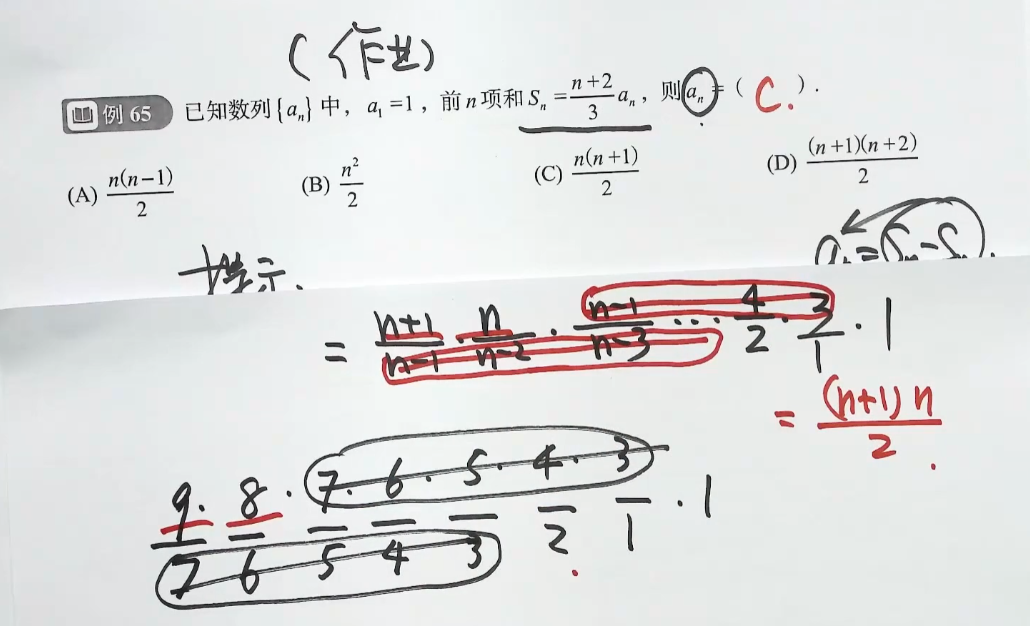 (作业)
例 65 已知数列{aₙ}中，a₁=1，前n项和Sₙ=\frac{n+2}{3}aₙ，则aₙ=( C. ).
(A) \frac{n(n-1)}{2} (B) \frac{n^2}{2} (C) \frac{n(n+1)}{2} (D) \frac{(n+1)(n+2)}{2}
提示.
= \frac{n+1}{n-1}·\frac{n}{n-2}·\frac{n-1}{n-3}···\frac{4}{2}·\frac{3}{1}·1
= \frac{(n+1)n}{2}.
\frac{9}{7}·\frac{8}{6}·\frac{7}{5}·\frac{6}{4}·\frac{5}{3}·\frac{4}{2}·\frac{3}{1}·1